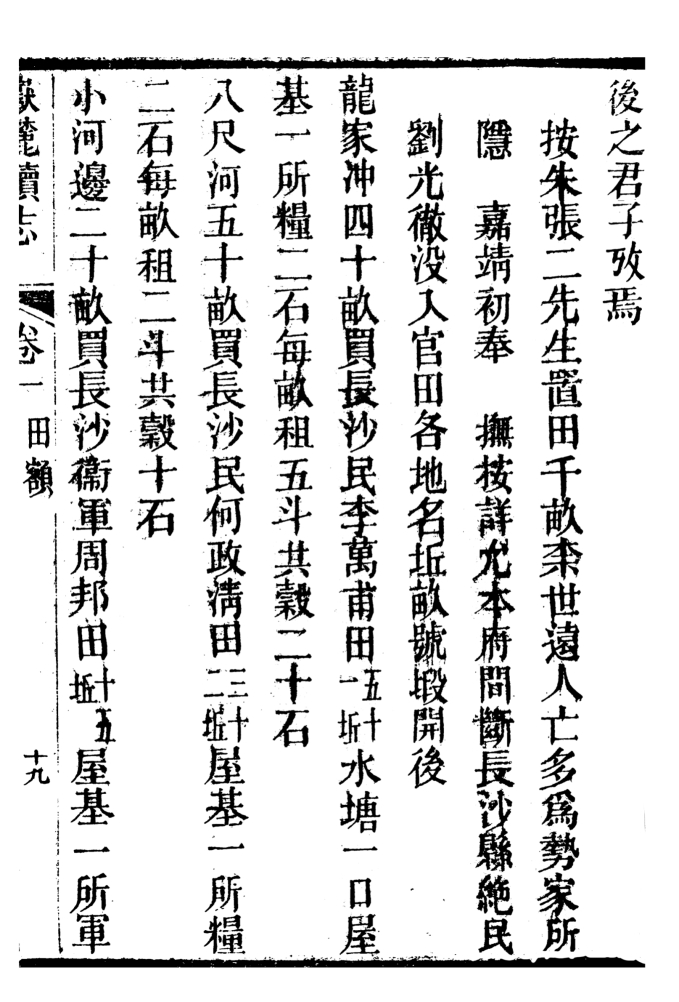 後之君子攷焉
按朱張二先生置田千畝柰世遠人亡多爲勢家所
隱　嘉靖初奉　撫按詳允本府間斷長沙縣絶民
劉光徹没入官田各地名坵畝號塅開後
龍家冲四十畝買長沙民李萬甫田五十一坵水塘一口屋
基一所糧二石每畝租五斗共穀二十石
八尺河五十畝買長沙民何政淸田三十二坵屋基一所糧
二石每畝租二斗共穀十石
小河邊二十畝買長沙衞軍周邦田十五坵屋基一所軍
嶽麓續志　卷一　田額　十九